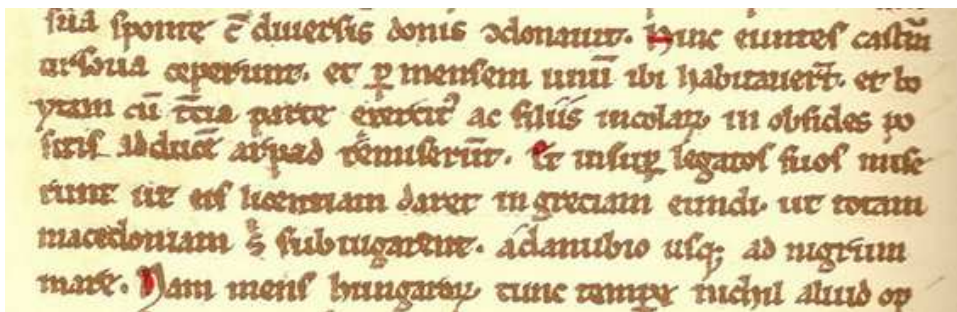 sua sponte cū diuersis donis ꝯdonauit. Hinc euntes castrū
urscia ceperunt. et ꝑ mensem unū ibi habitauer̄t. et bo
ytam cū t̄cia parte exercitꝰ ac filiis incolaꝝ in obsides po
sitis ad ducē arpad remiserūt. Et insuꝑ legatos suos mise
runt ut eis licentiam daret in greciam eundi. ut totam
macedoniam s̄ subiugarent. a danubio usqꝫ ad nigrum
mare. Nam mens hungaroꝝ tunc tempoꝝ nichil aliud op